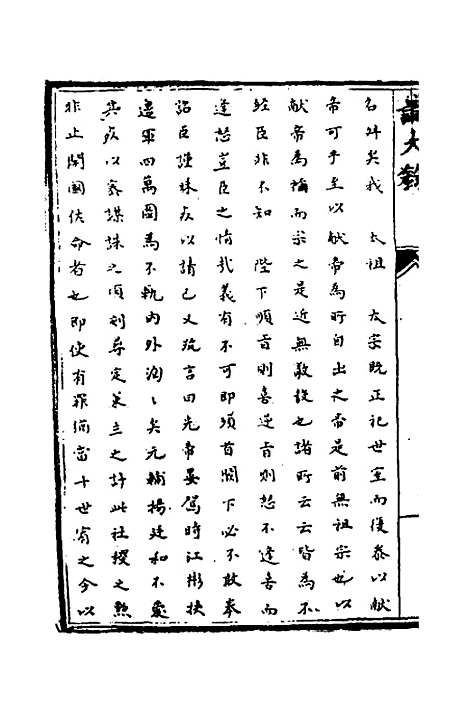 名舛矣我　太祖　太宗既正祀世室而復恭以獻
帝可乎至以獻帝為所自出之帝是前無祖宗也以
獻帝為禰而宗之是近無敬毅也諸所云云皆為不
經臣非不知　陛下順旨則喜逆旨則怒不逢喜而
逢怒豈臣之情哉義有不可即首闕下必不敢奉
詔臣謹昧死以請已又疏言曰先帝晏駕時江彬挾
邊軍四萬圖為不軌內外洶〻矣元輔楊廷和不愛
其死以密謀誅之頃刻尋定策立之計此社稷之勲
非止開國佐命者也即使有罪猶當十世宥之今以